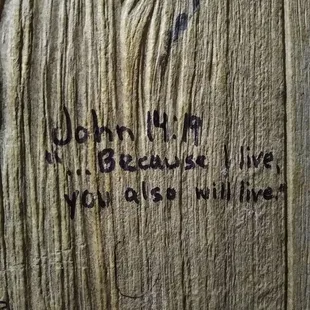 John 14:19
"...Because I live,
you also will live."